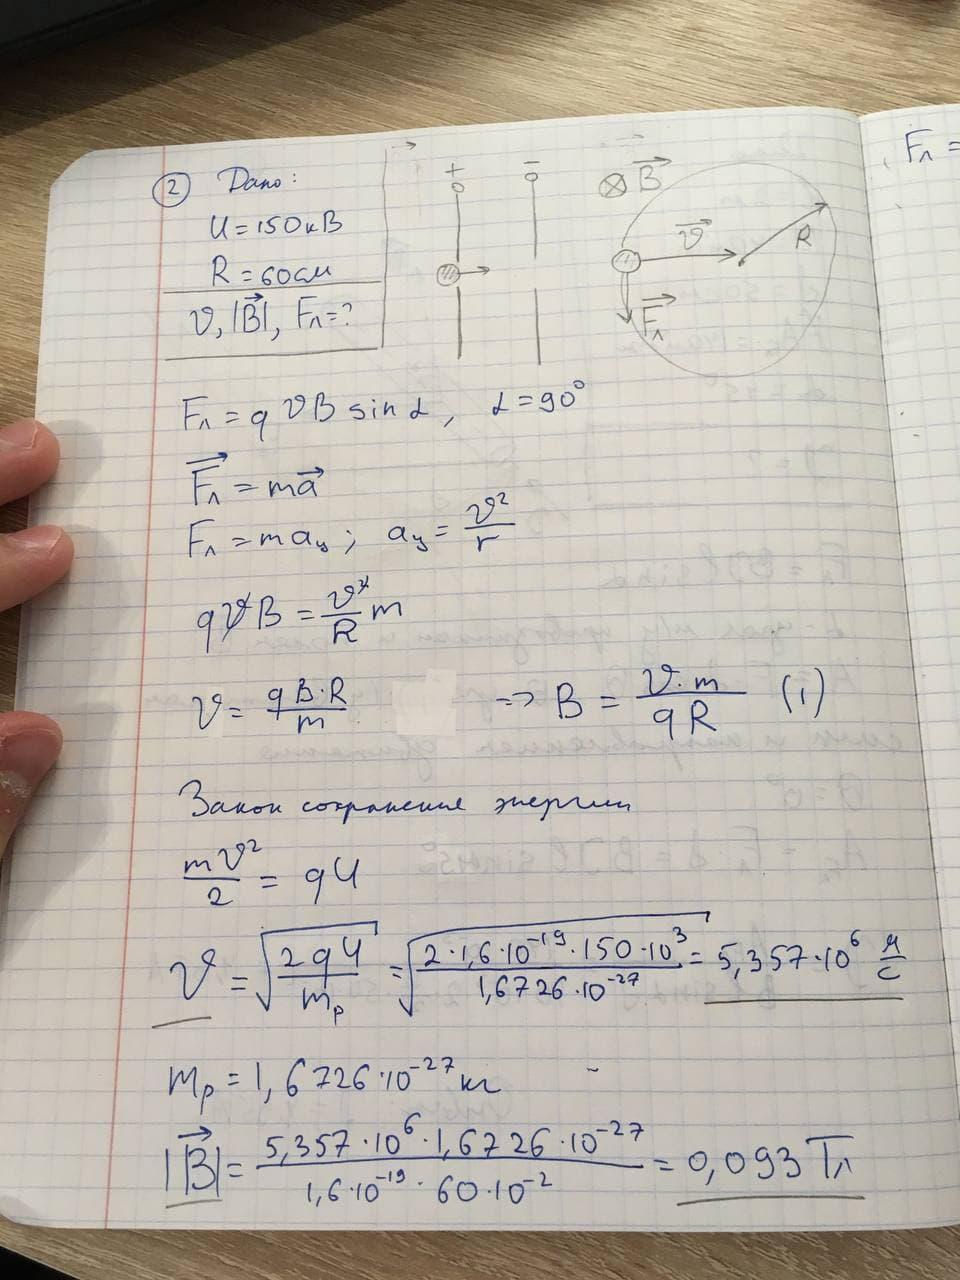 ② Дано:
U = 150 кВ
R = 60 см
𝜗, |B⃗|, Fл = ?
+ −
⊗ B⃗
𝜗⃗
R
F⃗л
Fл =
Fл = q 𝜗 B sin α, α = 90°
F⃗л = ma⃗
Fл = maц; aц = 𝜗²/r
q𝜗B = 𝜗²/R m
𝜗 = qB·R/m => B = 𝜗·m/qR (1)
Закон сохранения энергии
m𝜗²/2 = qU
𝜗 = √(2qU/mp) = √(2·1,6·10⁻¹⁹·150·10³/1,6726·10⁻²⁷) = 5,357·10⁶ м/с
mp = 1,6726·10⁻²⁷ кг
|B⃗| = 5,357·10⁶·1,6726·10⁻²⁷/1,6·10⁻¹⁹·60·10⁻² = 0,093 Тл